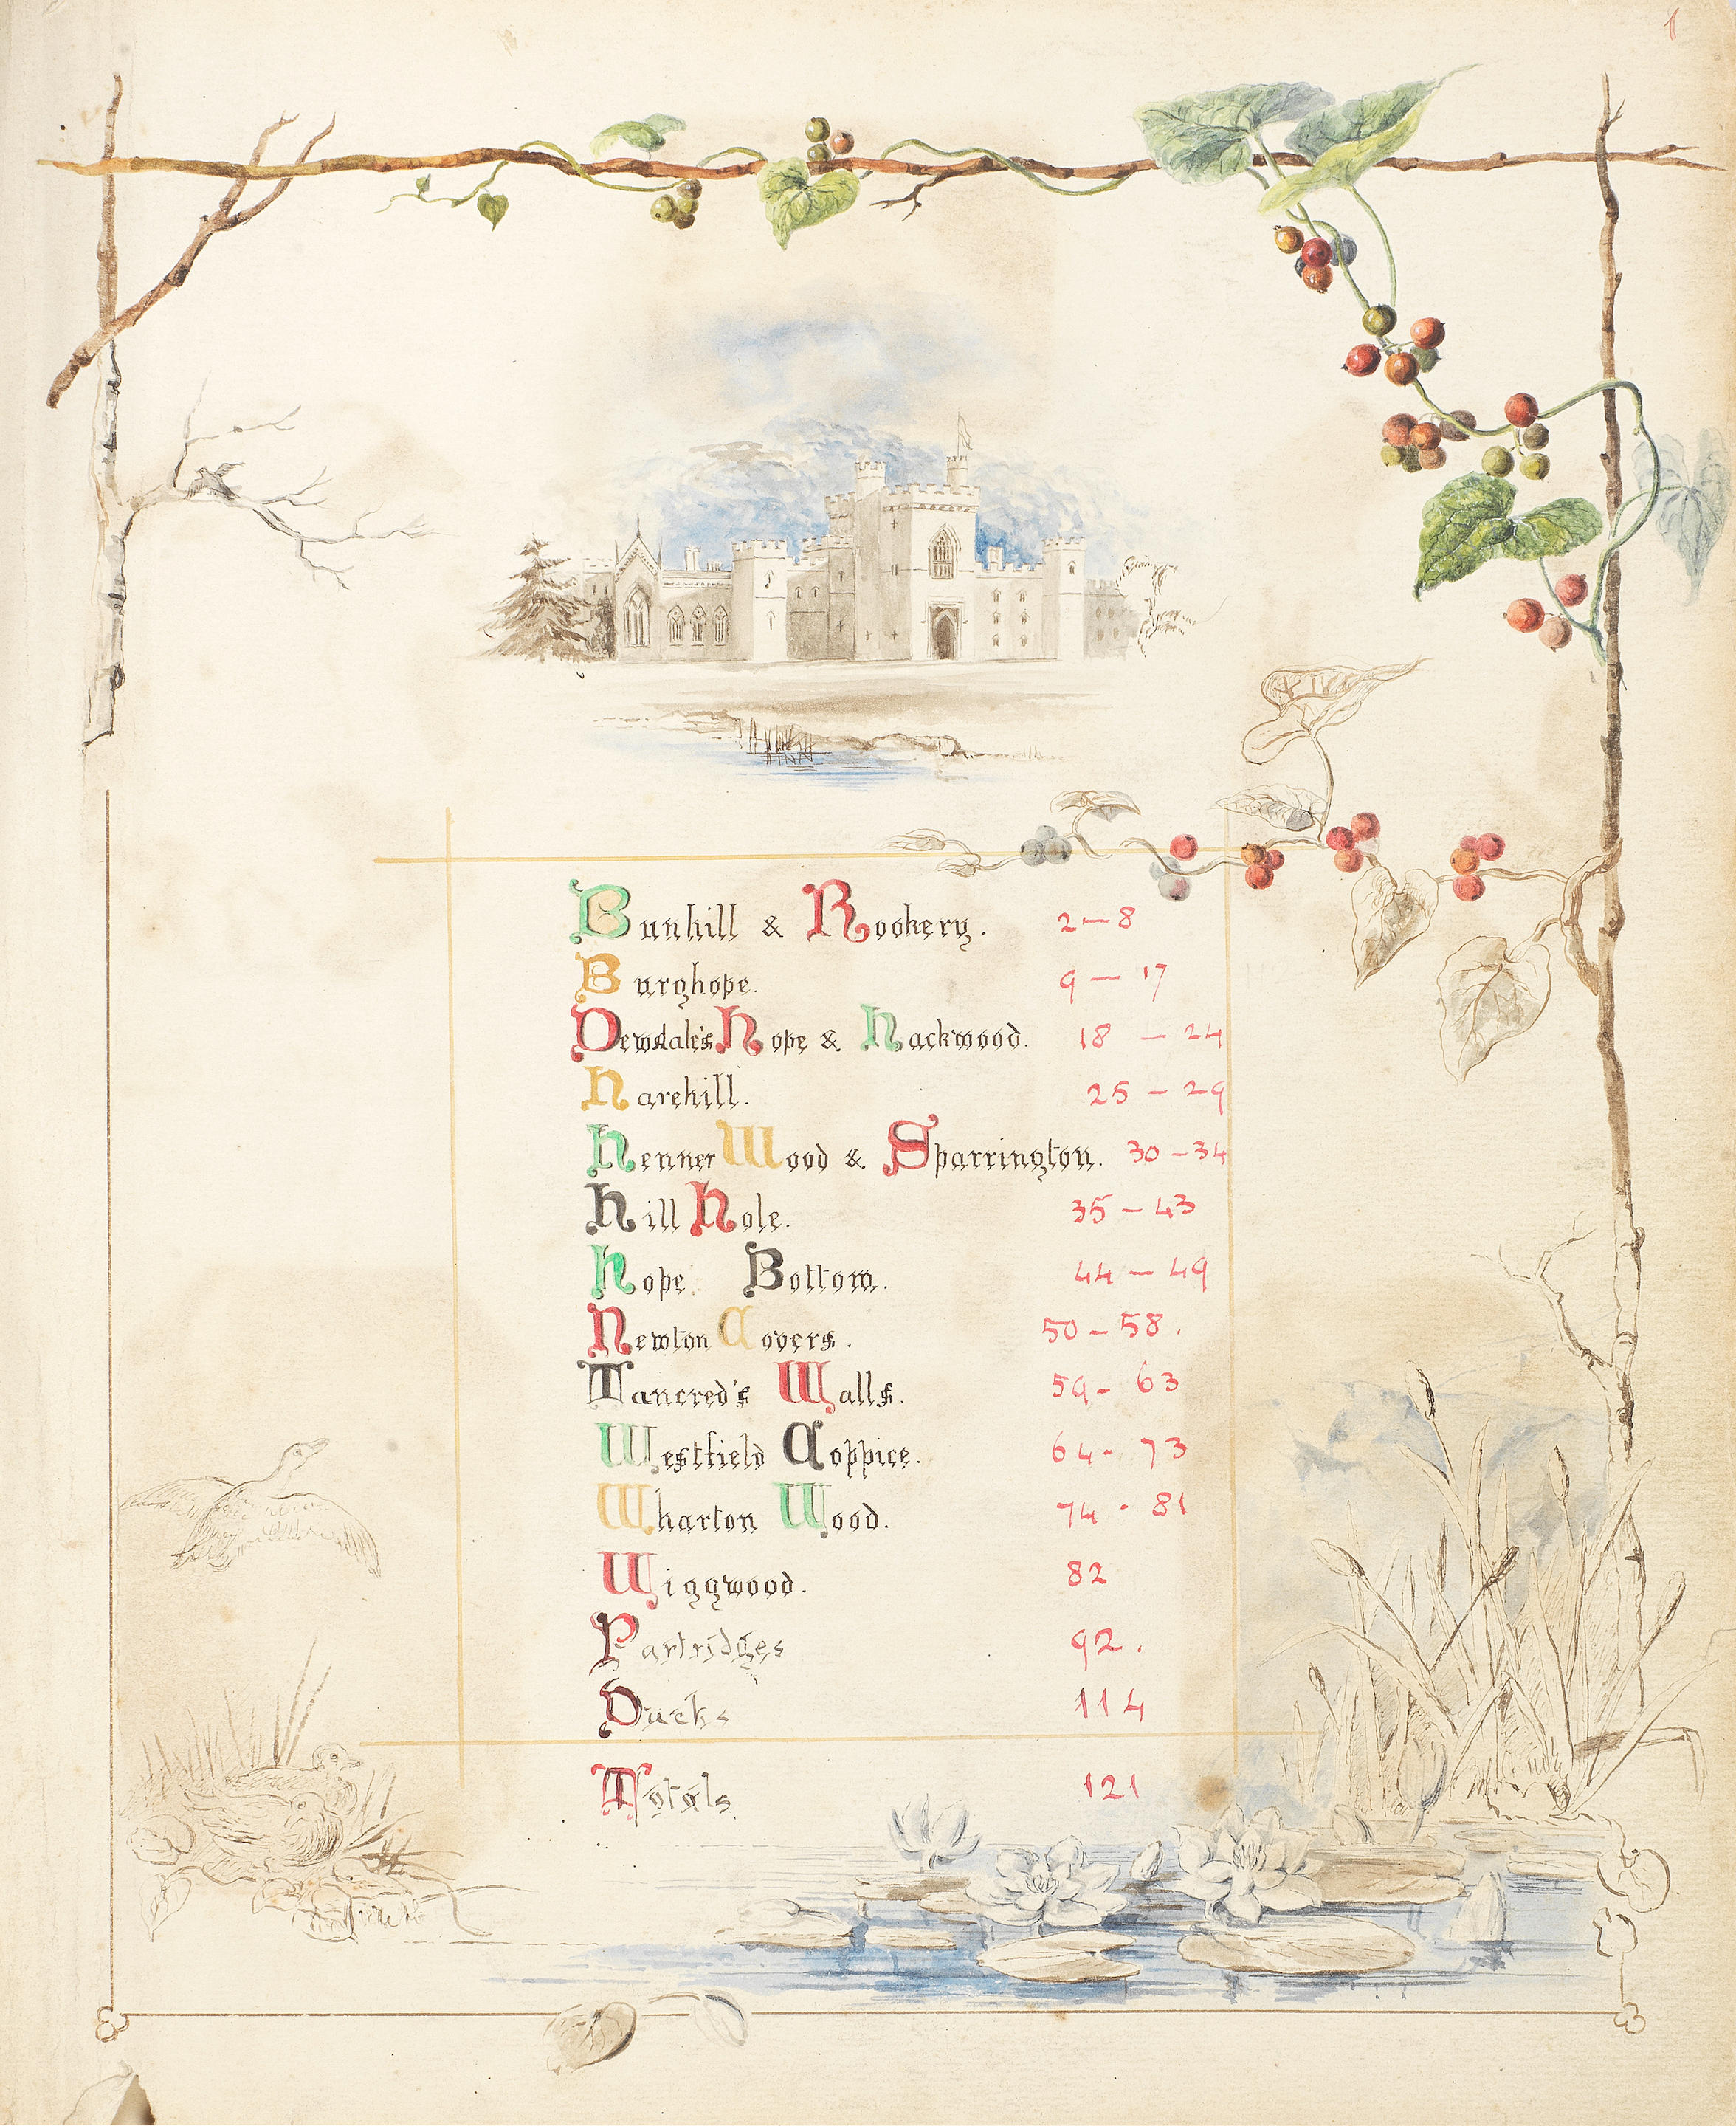 1
Bunhill & Rookery. 2-8
Burghope. 9-17
Dewdale's Hope & Hackwood. 18-24
Harehill. 25-29
Henner Wood & Sparrington. 30-34
Hill Hole. 35-43
Hope Bottom. 44-49
Newton Covers. 50-58.
Tancred's Walls. 59-63
Westfield Coppice. 64-73
Wharton Wood. 74-81
Wiggwood. 82
Partridges 92.
Ducks 114
Totals 121